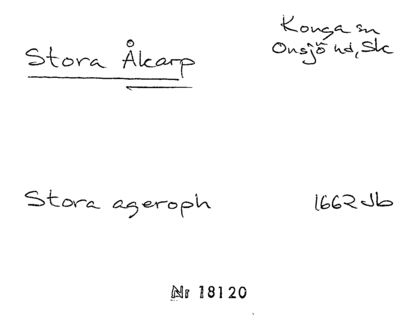 Stora Åkarp
Konga sn
Onsjö hd, Sk
Stora ageroph
1662 Jb
Nr 18120